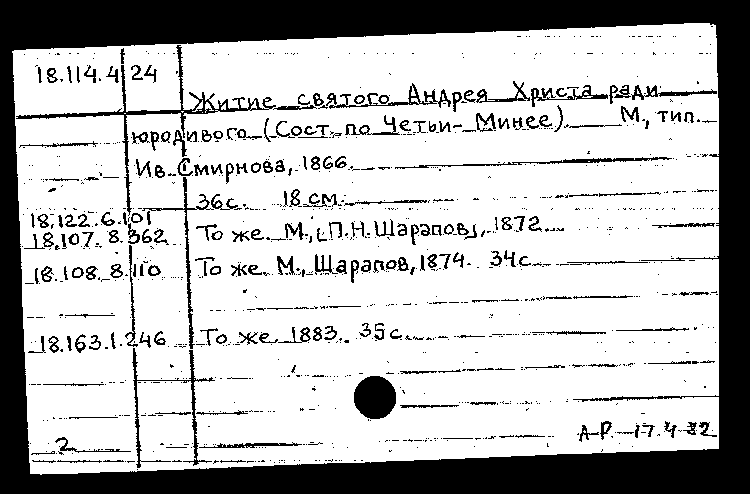 18.114.4.24
Житие святого Андрея Христа ради
юродивого (Сост. по Четьи-Минее). М., тип.
Ив. Смирнова, 1866.
36с. 18 см.
18.122.6.101
18.107.8.362 То же. М., [П.Н. Шарапов], 1872.
18.108.8.110 То же. М., Шарапов, 1874. 34с.
18.163.1.246 То же. 1883. 35с.
2 А-Р 17.4.82